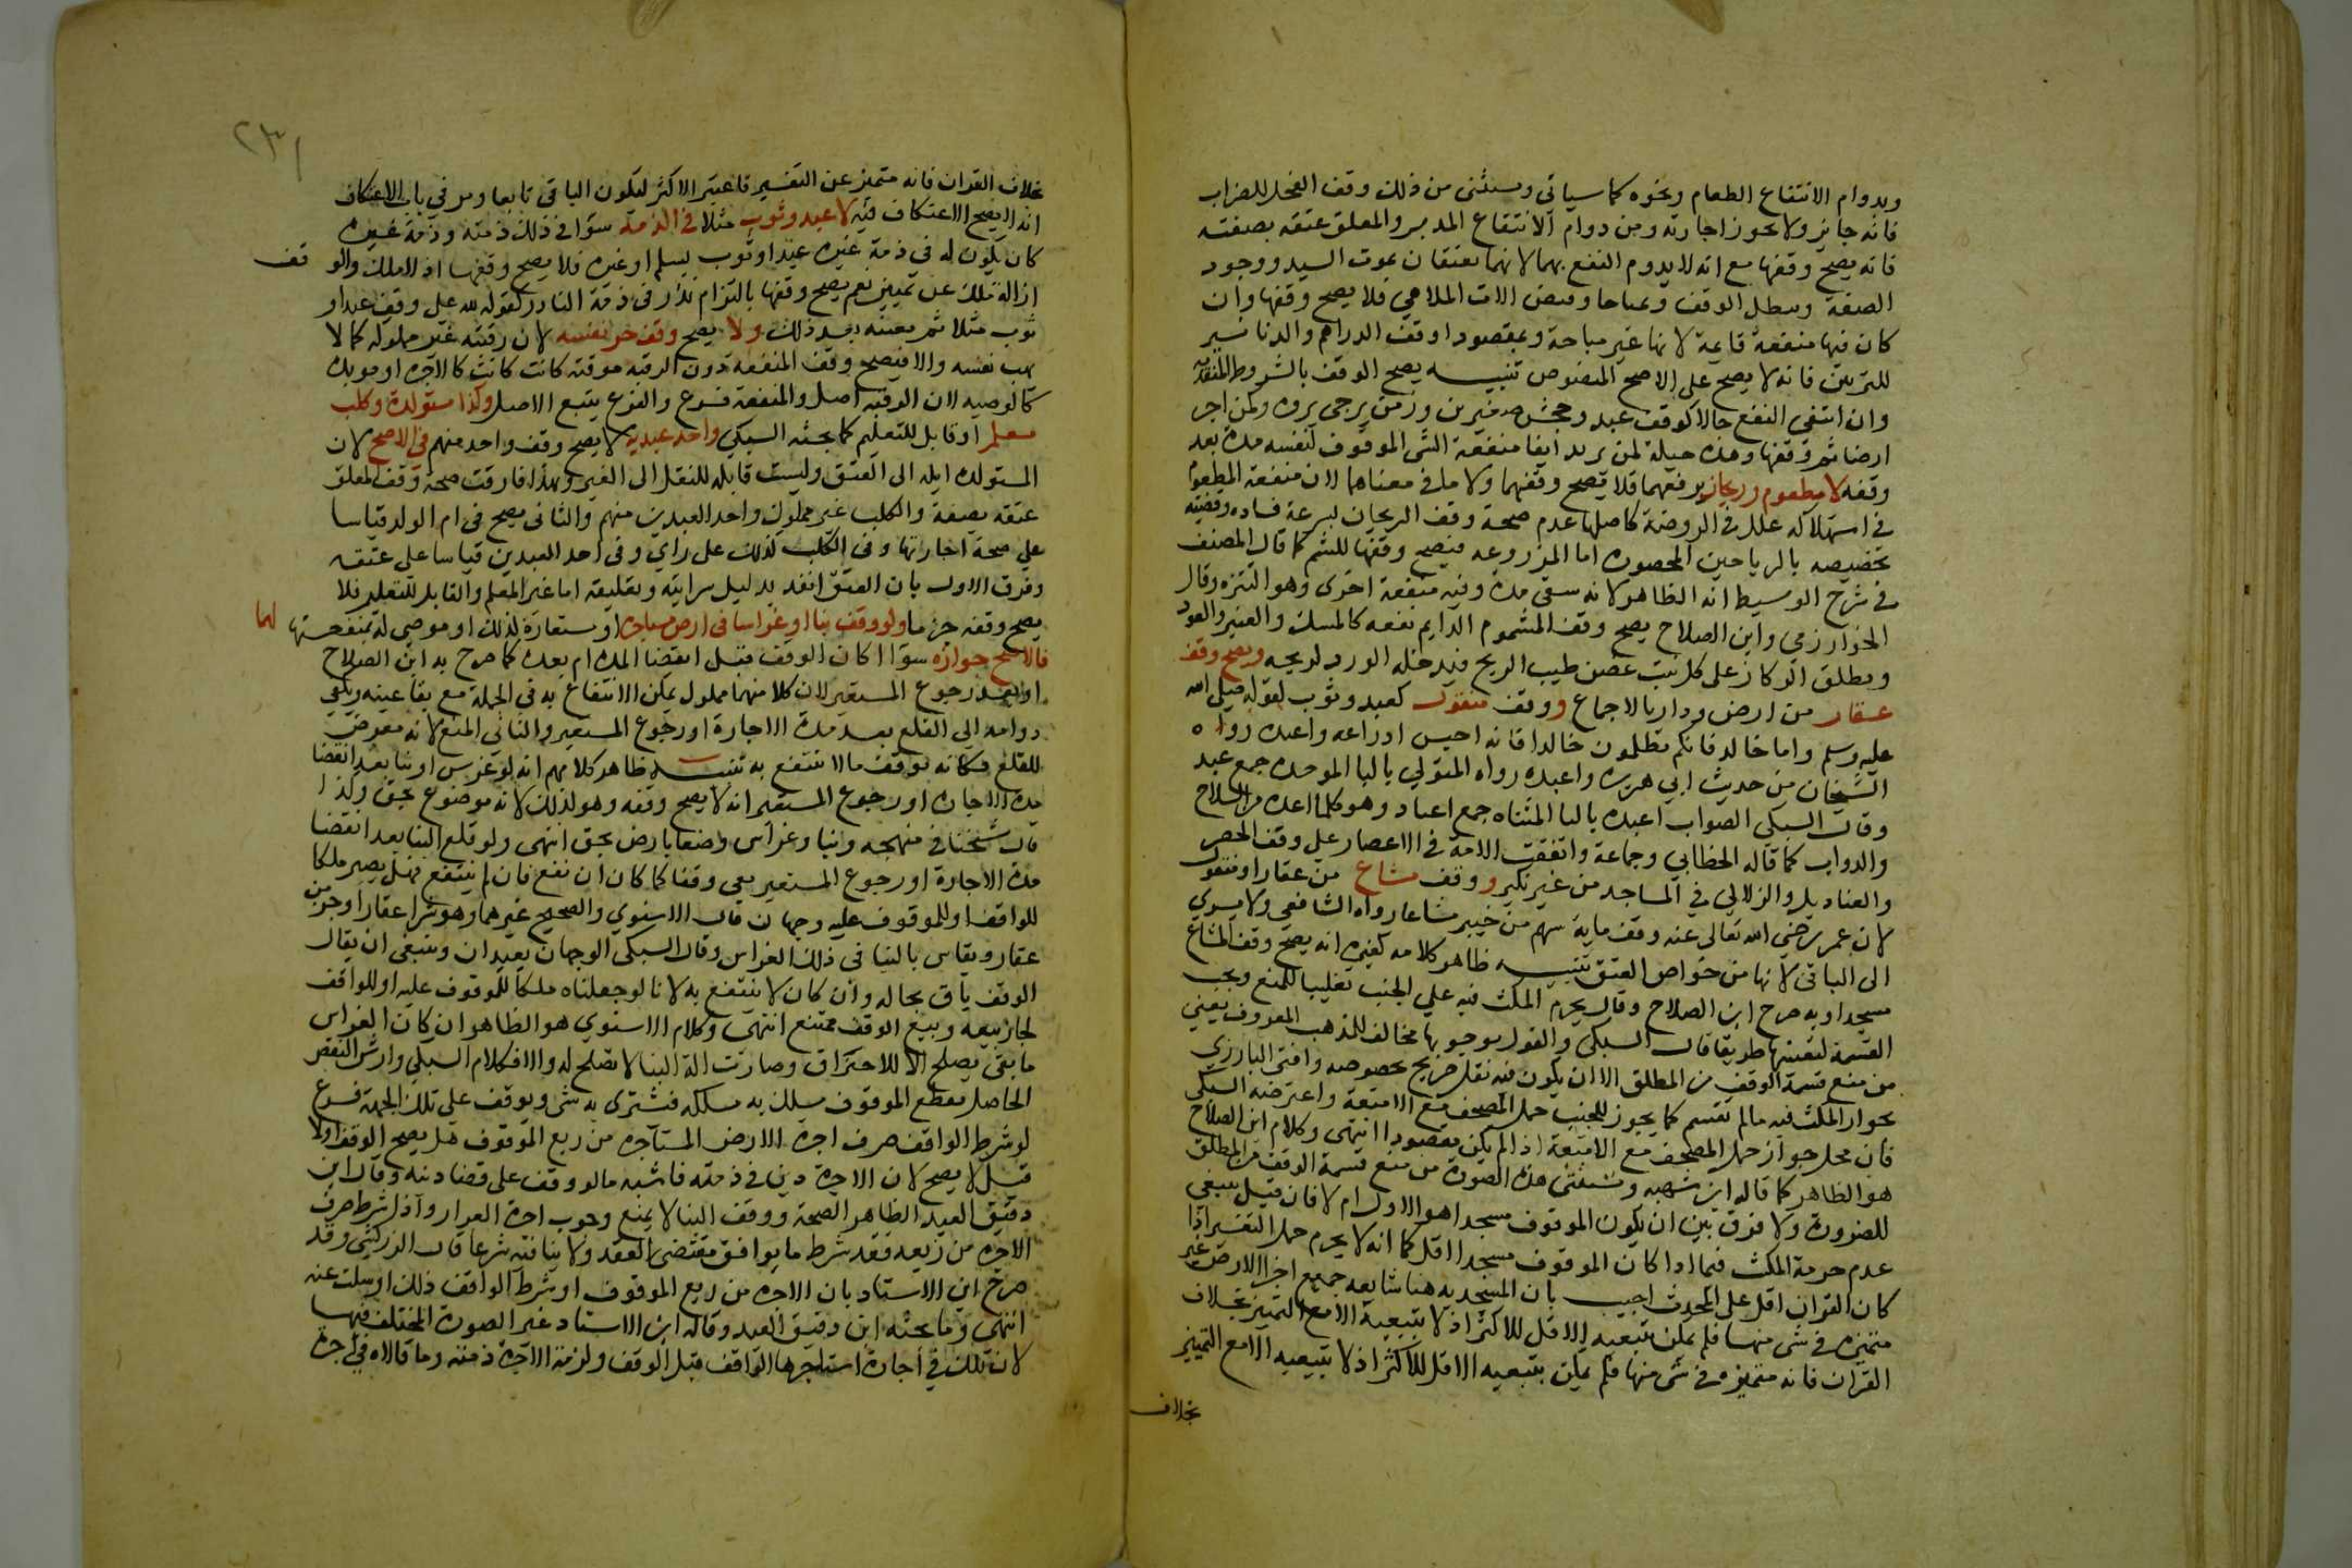 وبدوام الانتفاع الطعام ونحوه كما سياتي ويستثنى من ذلك وقف الفحل للضراب
فانه جايز ولا تجوز اجارته ومن دوام الانتفاع المدبر والمعلق عتقه بصفته
فانه يصح وقفها مع انه لا يدوم النفع بهما لانهما يعتقان بموت السيد ووجود
الصفة ويبطل الوقف وبمباحا وقف الات الملاهي فلا يصح وقفها وان
كان فيها منفعة قايمة لانها غير مباحة وبمقصود اوقف الدراهم والدنانير
للتزيين فانه لا يصح على الاصح المنصوص تنبيه يصح الوقف بالشروط المتقدمة
وان انتفى النفع حالا كوقف عبد وجحش صغيرين وزمن يرجى بروه وكمن اجر
ارضا ثم وقفها وهذه حيلة لمن يريد ابقا منفعة الشي الموقوف لنفسه مدة بعد
وقفه لا مطعوم وريحان برفعهما فلا يصح وقفهما ولا ما في معناهما لان منفعة المطعوم
في استهلاكه علله في الروضة كاصلها عدم صحة وقف الريحان بسرعة فساده وقضيته
تخصيصه بالرياحين المحصودة اما المزروعه فيصح وقفها للشم كما قال المصنف
في شرح الوسيط انه الظاهر لانه يبقى مدة وفيه منفعة اخرى وهو التنزه وقال
الخوارزمي وابن الصلاح يصح وقف المشموم الدايم نفعه كالمسك والعنبر والعود
ويطلق الركاز على كل نبت غض طيب الريح فيدخل الورد لريحه ويصح وقف
عقار من ارض ودار بالاجماع ووقف منقول كعبد وثوب لقوله صلى الله
عليه وسلم واما خالد فانكم تظلمون خالدا فانه احبس ادراعه واعبده رواه
الشيخان من حديث ابي هريرة واعبده رواه المتولي بالبا الموحدة جمع عبد
وقال السبكي الصواب اعبده بالتا المثناه جمع اعتاد وهو كلما اعده من السلاح
والدواب كما قاله الخطابي وجماعة واتفقت الامة في الاعصار على وقف الحصر
والقناديل والزلالي في المساجد من غير نكير ووقف مشاع من عقار او منقول
لان عمر رضي الله تعالى عنه وقف ماية سهم من خيبر مشاعا رواه الشافعي ولا يسري
الى الباقي لانها من خواص العتق تنبيه ظاهر كلامه كغيره انه يصح وقف المشاع
مسجدا وبه صرح ابن الصلاح وقال يحرم المكث فيه على الجنب تغليبا للمنع ويجب
القسمة لتعينها طريقا قال السبكي والقول بوجوبها مخالف للمذهب المعروف يعني
من منع قسمة الوقف من المطلق الا ان يكون فيه نقل صريح بخصوصه وافتى البارزي
بجواز المكث فيه مالم تقسم كما يجوز للجنب حمل المصحف مع الامتعة واعترضه السبكي
فان محل جواز حمل المصحف مع الامتعة اذا لم يكن مقصودا انتهى وكلام ابن الصلاح
هو الظاهر كما قاله ابن شهبه وتستثنى هذه الصورة من منع قسمة الوقف من المطلق
للضرورة ولا فرق بين ان يكون الموقوف مسجدا هو الاول ام لا فان قيل ينبغي
عدم حرمة المكث فيما اذا كان الموقوف مسجدا اقل كما انه لا يحرم حمل التفسير اذا
كان القران اقل على المحدث اجيب بان المسجديه هنا شايعه جميع اجزا الارض غير
متميزه في شي منها فلم يمكن تبعيه الاقل للاكثر اذ لا تبعية الا مع التميز بخلاف
القران فانه متميزه في شي منها فلم يمكن بتبعيه الاقل للاكثر اذ لا تبعيه الا مع التمييز
بخلاف
٢٣١
بخلاف القران فانه متميز عن التفسير فاعتبر الاكثر ليكون الباقي تابعا ومر في باب الاعتكاف
انه لا يصح الاعتكاف فيه لا عبد وثوب مثلا في الذمة سوا في ذلك ذمته وذمة غيره
كان يكون له في ذمة غيره عبد او ثوب بسلم او غيره فلا يصح وقفها اذ لا ملك والو قف
ازالة ملك عن عين نعم يصح وقفها بالتزام نذر في ذمة الناذر كقوله لله علي وقف عبد او
ثوب مثلا ثم يعينه بعد ذلك ولا يصح وقف حر نفسه لان رقبته غير مملوكه كما لا
يهب نفسه والا فيصح وقف المنفعة دون الرقبه موقته كانت كانت كالاجره او موبده
كالوصيه لان الرقبه اصل والمنفعة فرع والفرع يتبع الاصل وكذا مستولدة وكلب
معلم او قابل للتعليم كما بحثه السبكي واحد عبديه لا يصح وقف واحد منهم في الاصح لان
المستولده ايله الى العتق وليست قابله للنقل الى الغير وبهذا فارقت صحة وقف المعلق
عتقه بصفة والكلب غير مملوك واحد العبدين منهم والثاني يصح في ام الولد قياسا
على صحة اجارتها وفي الكلب كذلك على راي وفي احد العبدين قياسا على عتقه
وفرق الاول بان العتق انفذ بدليل سرايته وتعليقه اما غير المعلم والقابل للتعلم فلا
يصح وقفه جزما ولو وقف بنا او غراسا في ارض مستاجرة او مستعارة لذلك او موصى له بمنفعتها لهما
فالاصح جوازه سوا اكان الوقف قبل انقضا المدة ام بعده كما صرح به ابن الصلاح
او بعد رجوع المستعير لان كلا منهما مملوك يمكن الانتفاع به في الجملة مع بقا عينه ويكفي
دوامه الى القلع بعد مدة الاجارة او رجوع المستعير والثاني المنع لانه معرض
للقلع فكانه وقف مالا ينتفع به تنبيه ظاهر كلامهم انه لو غرس او بنا بعد انقضا
مدة الاجارة او رجوع المستعير انه لا يصح وقفه وهو كذلك لانه موضوع بحق ولذا
قال شيخنا في منهجه وبنا وغراس وضعا بارض بحق انتهى ولو قلع البنا بعد انقضا
مدة الاجارة او رجوع المستعير بقي وقفا كما كان ان نفع فان لم ينتفع فهل يصير ملكا
للواقف او للموقوف عليه وجهان قال الاسنوي والصحيح غيرهما وهو شرا عقار او جزء من
عقار ويقاس بالبنا في ذلك الغراس وقال السبكي الوجهان بعيدان وينبغي ان يقال
الوقف باق بحاله وان كان لا ينتفع به لانا لو جعلناه ملكا للموقوف عليه او للواقف
لجاز بيعه وبيع الوقف ممتنع انتهى وكلام الاسنوي هو الظاهر ان كان الغراس
ما بقي يصلح الا للاحتراق وصارت الة البنا لا تصلح له والا فكلام السبكي وارش النقص
الحاصل بقطع الموقوف يسلك به مسلكه فيشترى به شي ويوقف على تلك الجهة فرع
لو شرط الواقف صرف اجرة الارض المستاجره من ريع الموقوف هل يصح الوقف اولا
قيل لا يصح لان الاجرة دين في ذمته فاشبه مالو وقف على قضا دينه وقال ابن
دقيق العيد الظاهر الصحة ووقف البنا لا يمنع وجوب اجرة القرار واذا شرط صرف
الاجره من ريعه فقد شرط ما يوافق مقتضى العقد ولا ينافيه شرعا قال الزركشي وقد
صرح ابن الاستاذ بان الاجره من ريع الموقوف او شرط الواقف ذلك او سكت عنه
انتهى وما بحثه ابن دقيق العيد وقاله ابن الاستاد غير الصورة المختلف فيها
لان تلك في اجارة استاجرها الواقف قبل الوقف ولزمة الاجرة ذمته وما قالاه في اجرة